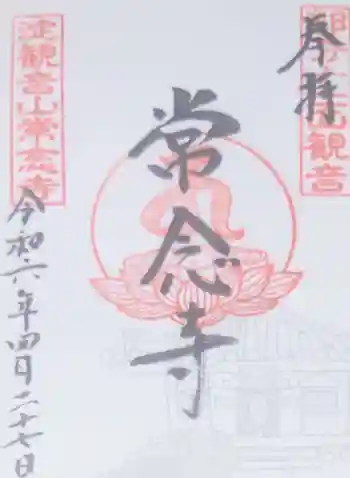 奉拝
常念寺
淀観音山常念寺
令和六年四月二十七日